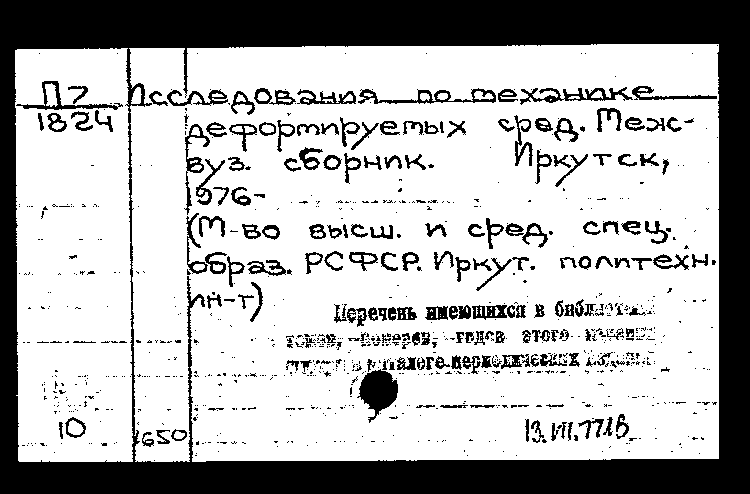 П7 Исследования по механике
1824 деформируемых сред. Меж-
вуз. сборник. Иркутск,
1976-
(М-во высш. и сред. спец.
образ. РСФСР. Иркут. политехн.
ин-т)
Перечень имеющихся в
томов, номеров, годов этого
в каталоге периодических
10 1650